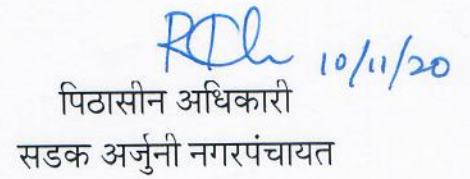 10/11/20
पिठासीन अधिकारी
सडक अर्जुनी नगरपंचायत